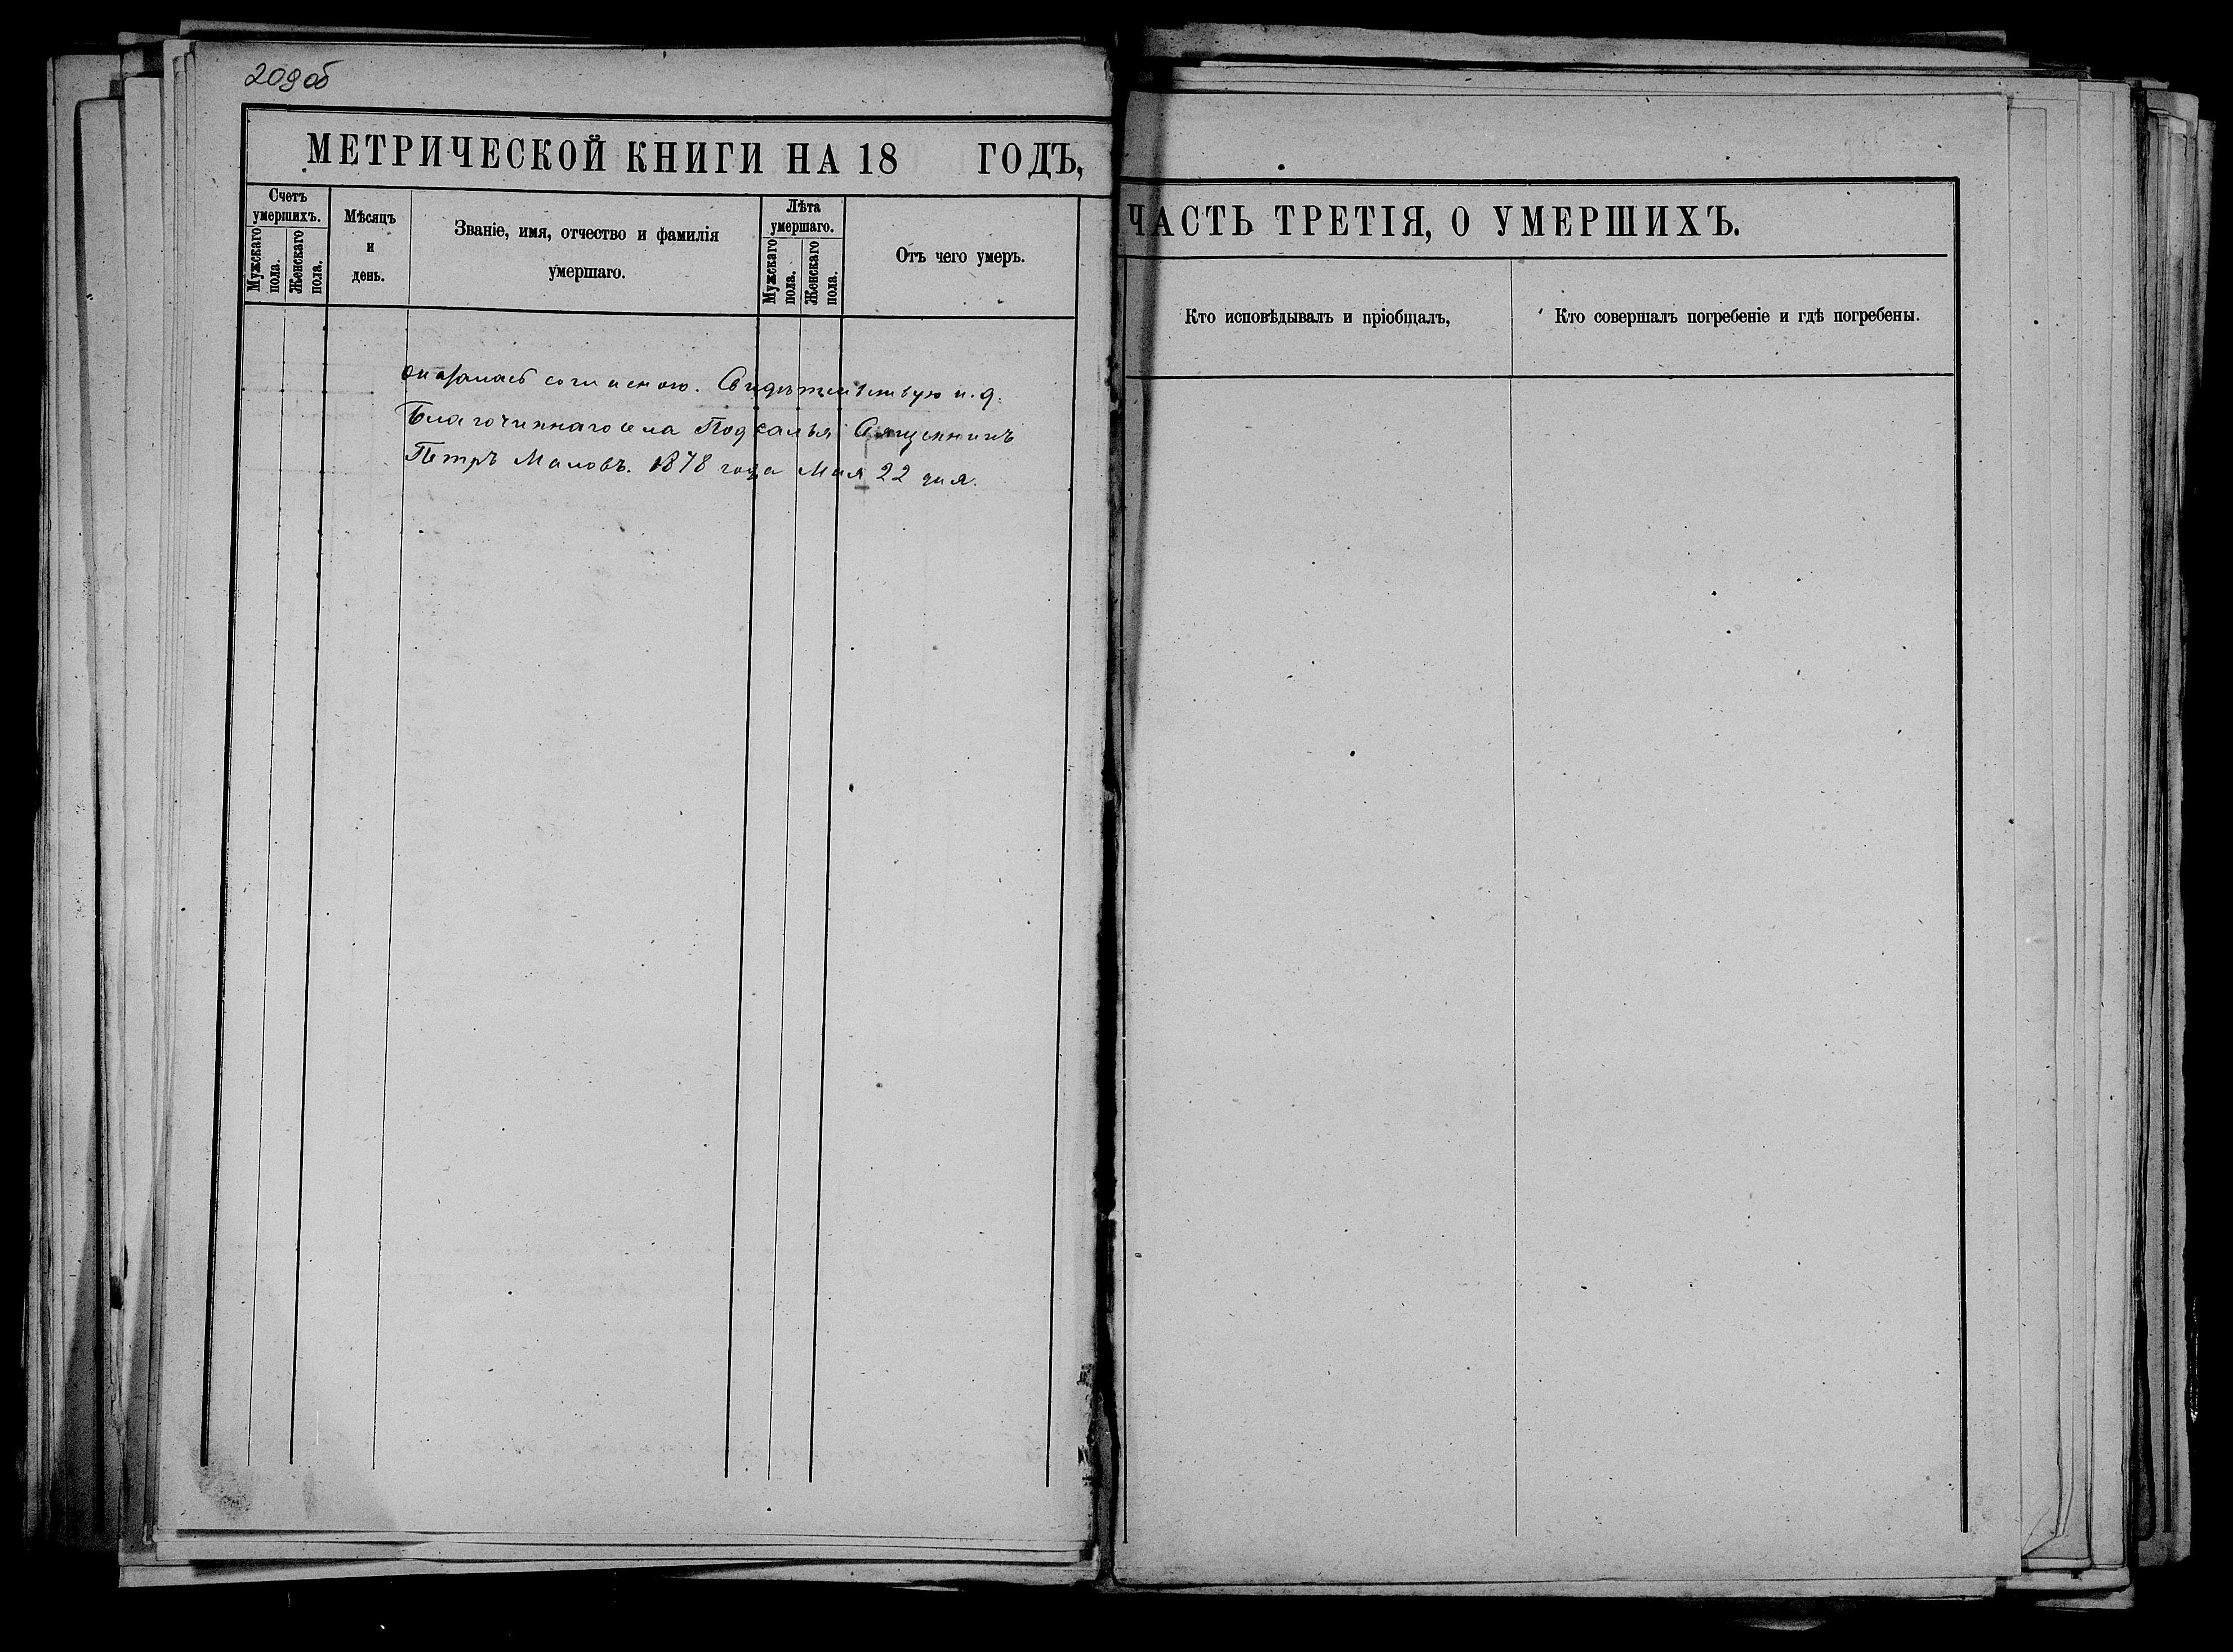 209 об
МЕТРИЧЕСКОЙ КНИГИ НА 18 ГОДЪ,
Счетъ умершихъ.
Мужскаго пола.
Женскаго пола.
Мѣсяцъ и день.
Званіе, имя, отчество и фамилія умершаго.
Лѣта умершаго.
Мужскаго пола.
Женскаго пола.
Отъ чего умеръ.
оказалась согласною. Свидѣтельствую и. д.
Благочиннаго села Священникъ
Петръ Маловъ. 1878 года Мая 22 дня.
ЧАСТЬ ТРЕТІЯ, О УМЕРШИХЪ.
Кто исповѣдывалъ и пріобщалъ,
Кто совершалъ погребеніе и гдѣ погребены.